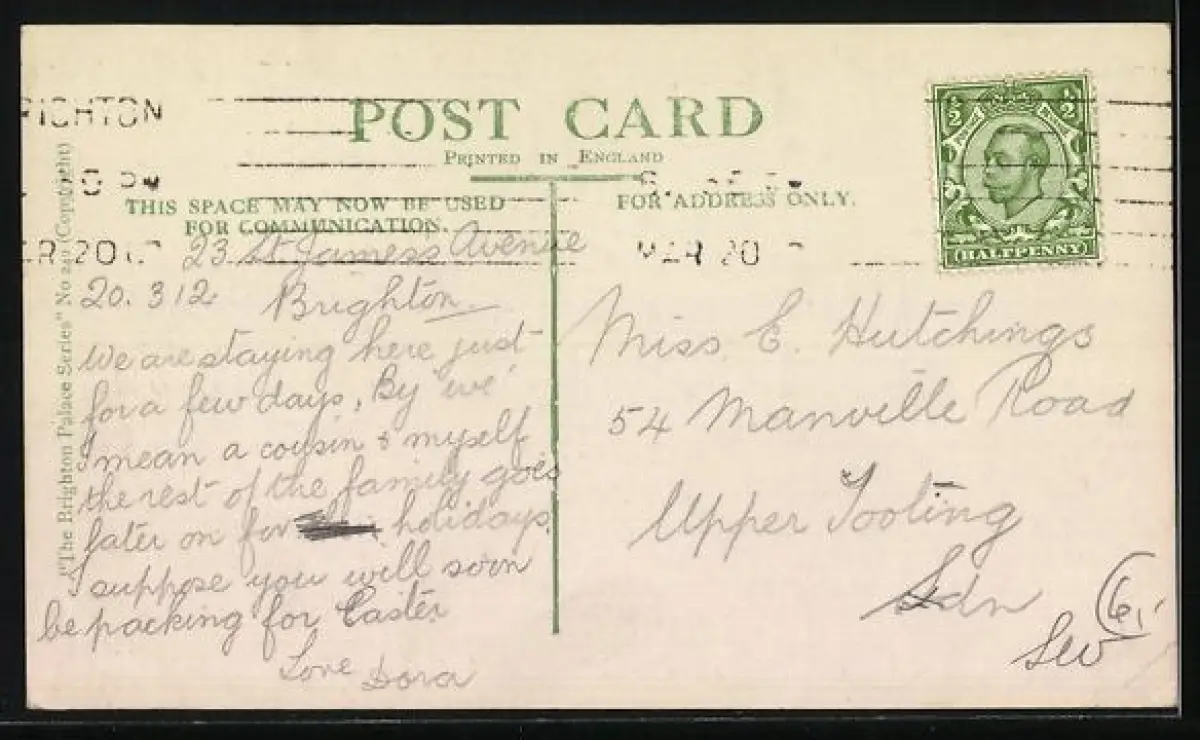 BRIGHTON
POST CARD
PRINTED IN ENGLAND
THIS SPACE MAY NOW BE USED
FOR COMMUNICATION.
FOR ADDRESS ONLY.
HALFPENNY
MAR 20
"The Brighton Palace Series" No (Copyright)
23 St James's Avenue
20.3 12. Brighton
We are staying here just
for a few days, By 'we'
I mean a cousin & myself
the rest of the family goes
later on for holidays.
I suppose you will soon
be packing for Easter.
Love Dora
Miss E. Hutchings
54 Manville Road
Upper Tooting
Ldn
SW